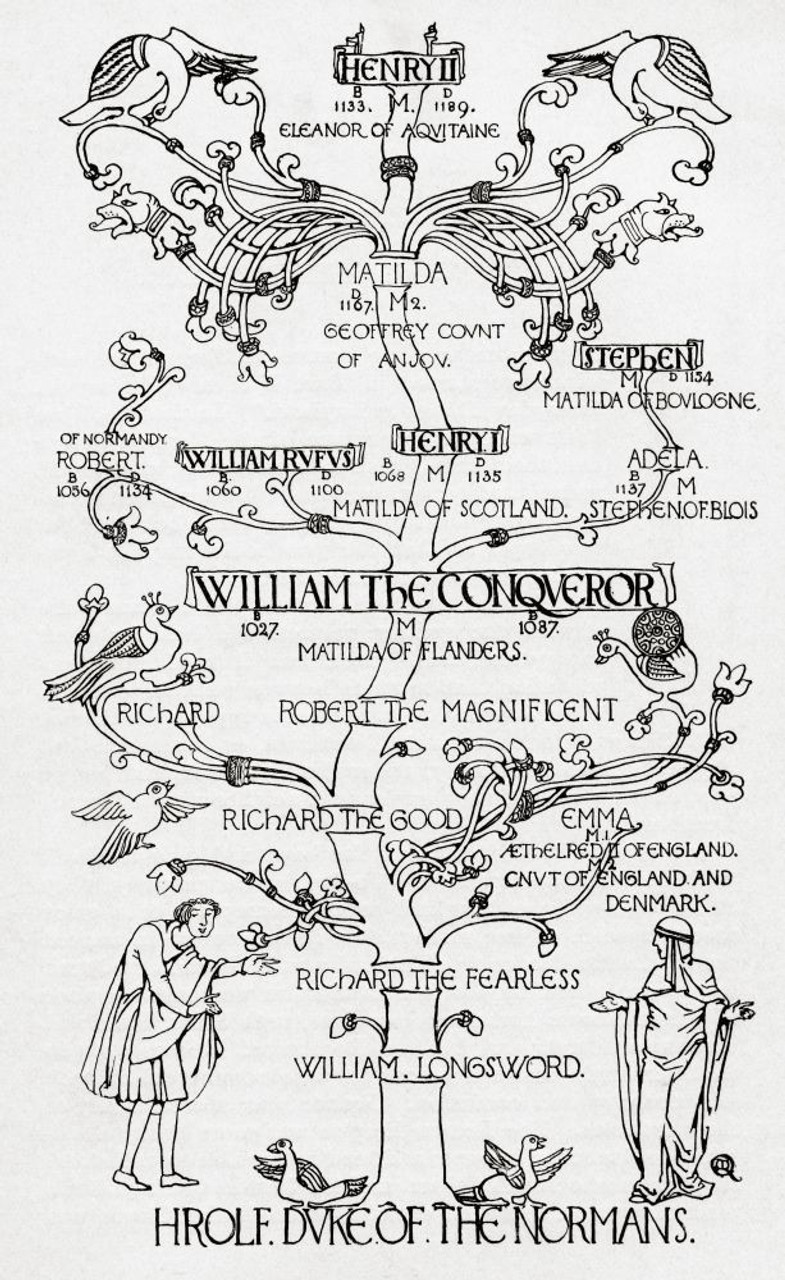 HENRY II
B 1133. M. D 1189.
ELEANOR OF AQVITAINE
MATILDA
D 1167. M 2.
GEOFFREY COVNT
OF ANJOV.
STEPHEN
M D 1154
MATILDA OF BOVLOGNE.
OF NORMANDY.
ROBERT.
B 1056 D 1134
WILLIAM RVFVS
B. 1060 D 1100
HENRY. I
B 1068 M D 1135
MATILDA OF SCOTLAND.
ADELA.
B 1137 M
STEPHEN.OF.BLOIS
WILLIAM THE CONQVEROR
B 1027. M B 1087.
MATILDA OF FLANDERS.
RICHARD
ROBERT THE MAGNIFICENT
RICHARD THE GOOD
EMMA.
M.1.
ÆTHELRED II OF ENGLAND.
M 2
CNVT OF ENGLAND. AND
DENMARK.
RICHARD THE FEARLESS
WILLIAM. LONGSWORD.
HROLF. DVKE. OF. THE NORMANS.